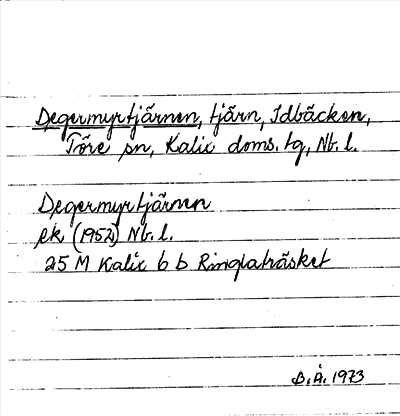 Degermyrtjärnen, tjärn, Idbäcken,
Töre sn, Kalix doms. tg, Nb. l.
Degermyrtjärnen
ek (1952) Nb. l.
25 M Kalix 6 b Ringlaträsket
B. Å. 1973